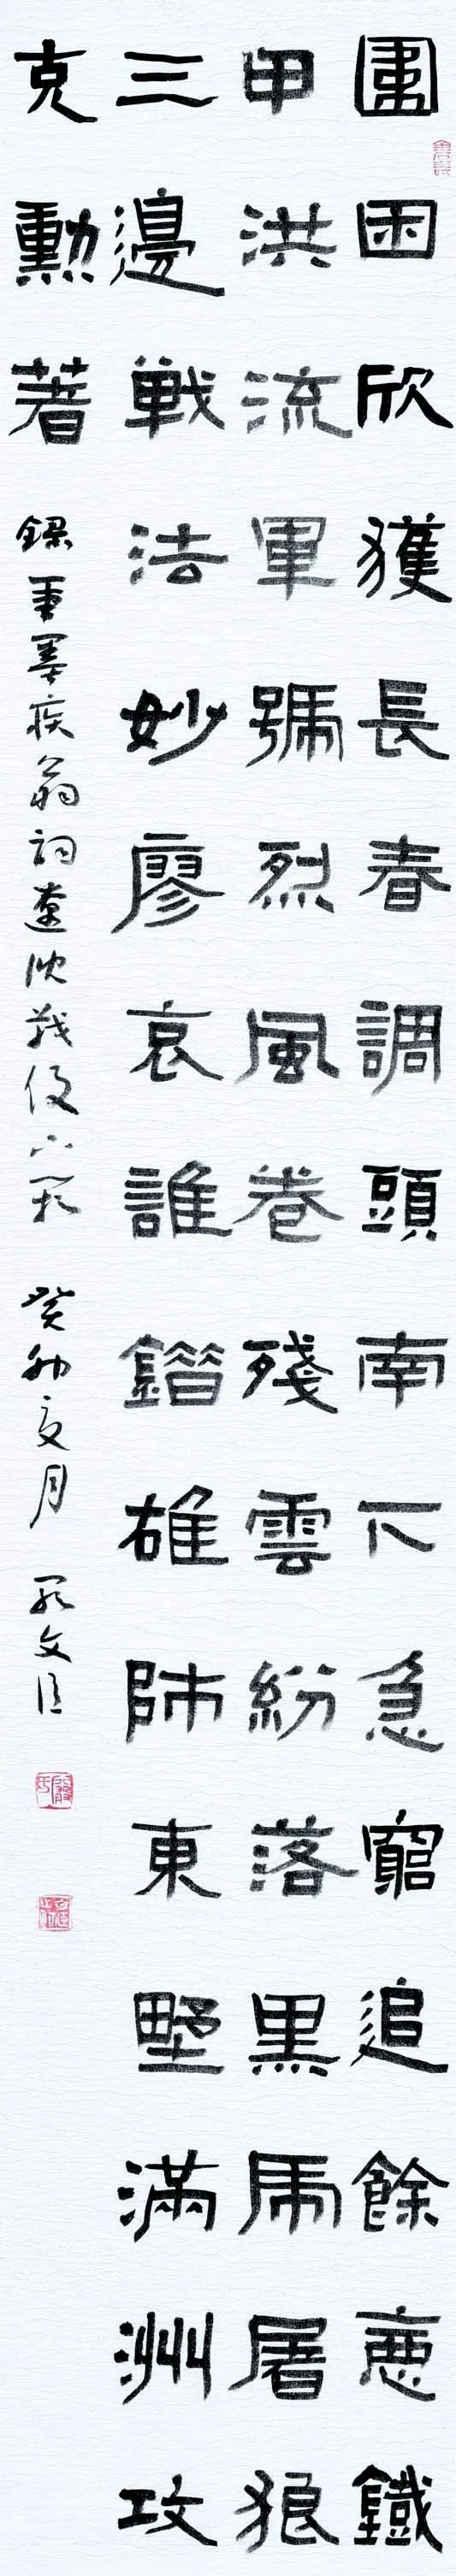 圍困欣獲長春調頭南下急窮追餘悳鐵
甲洪流軍號烈風卷殘雲紛落黑虎屠狼
三邊戰法妙廖哀誰鍇雄師東野滿洲攻
克勳著
錄重墨疾翁詞遼沈戰役
癸卯夏月